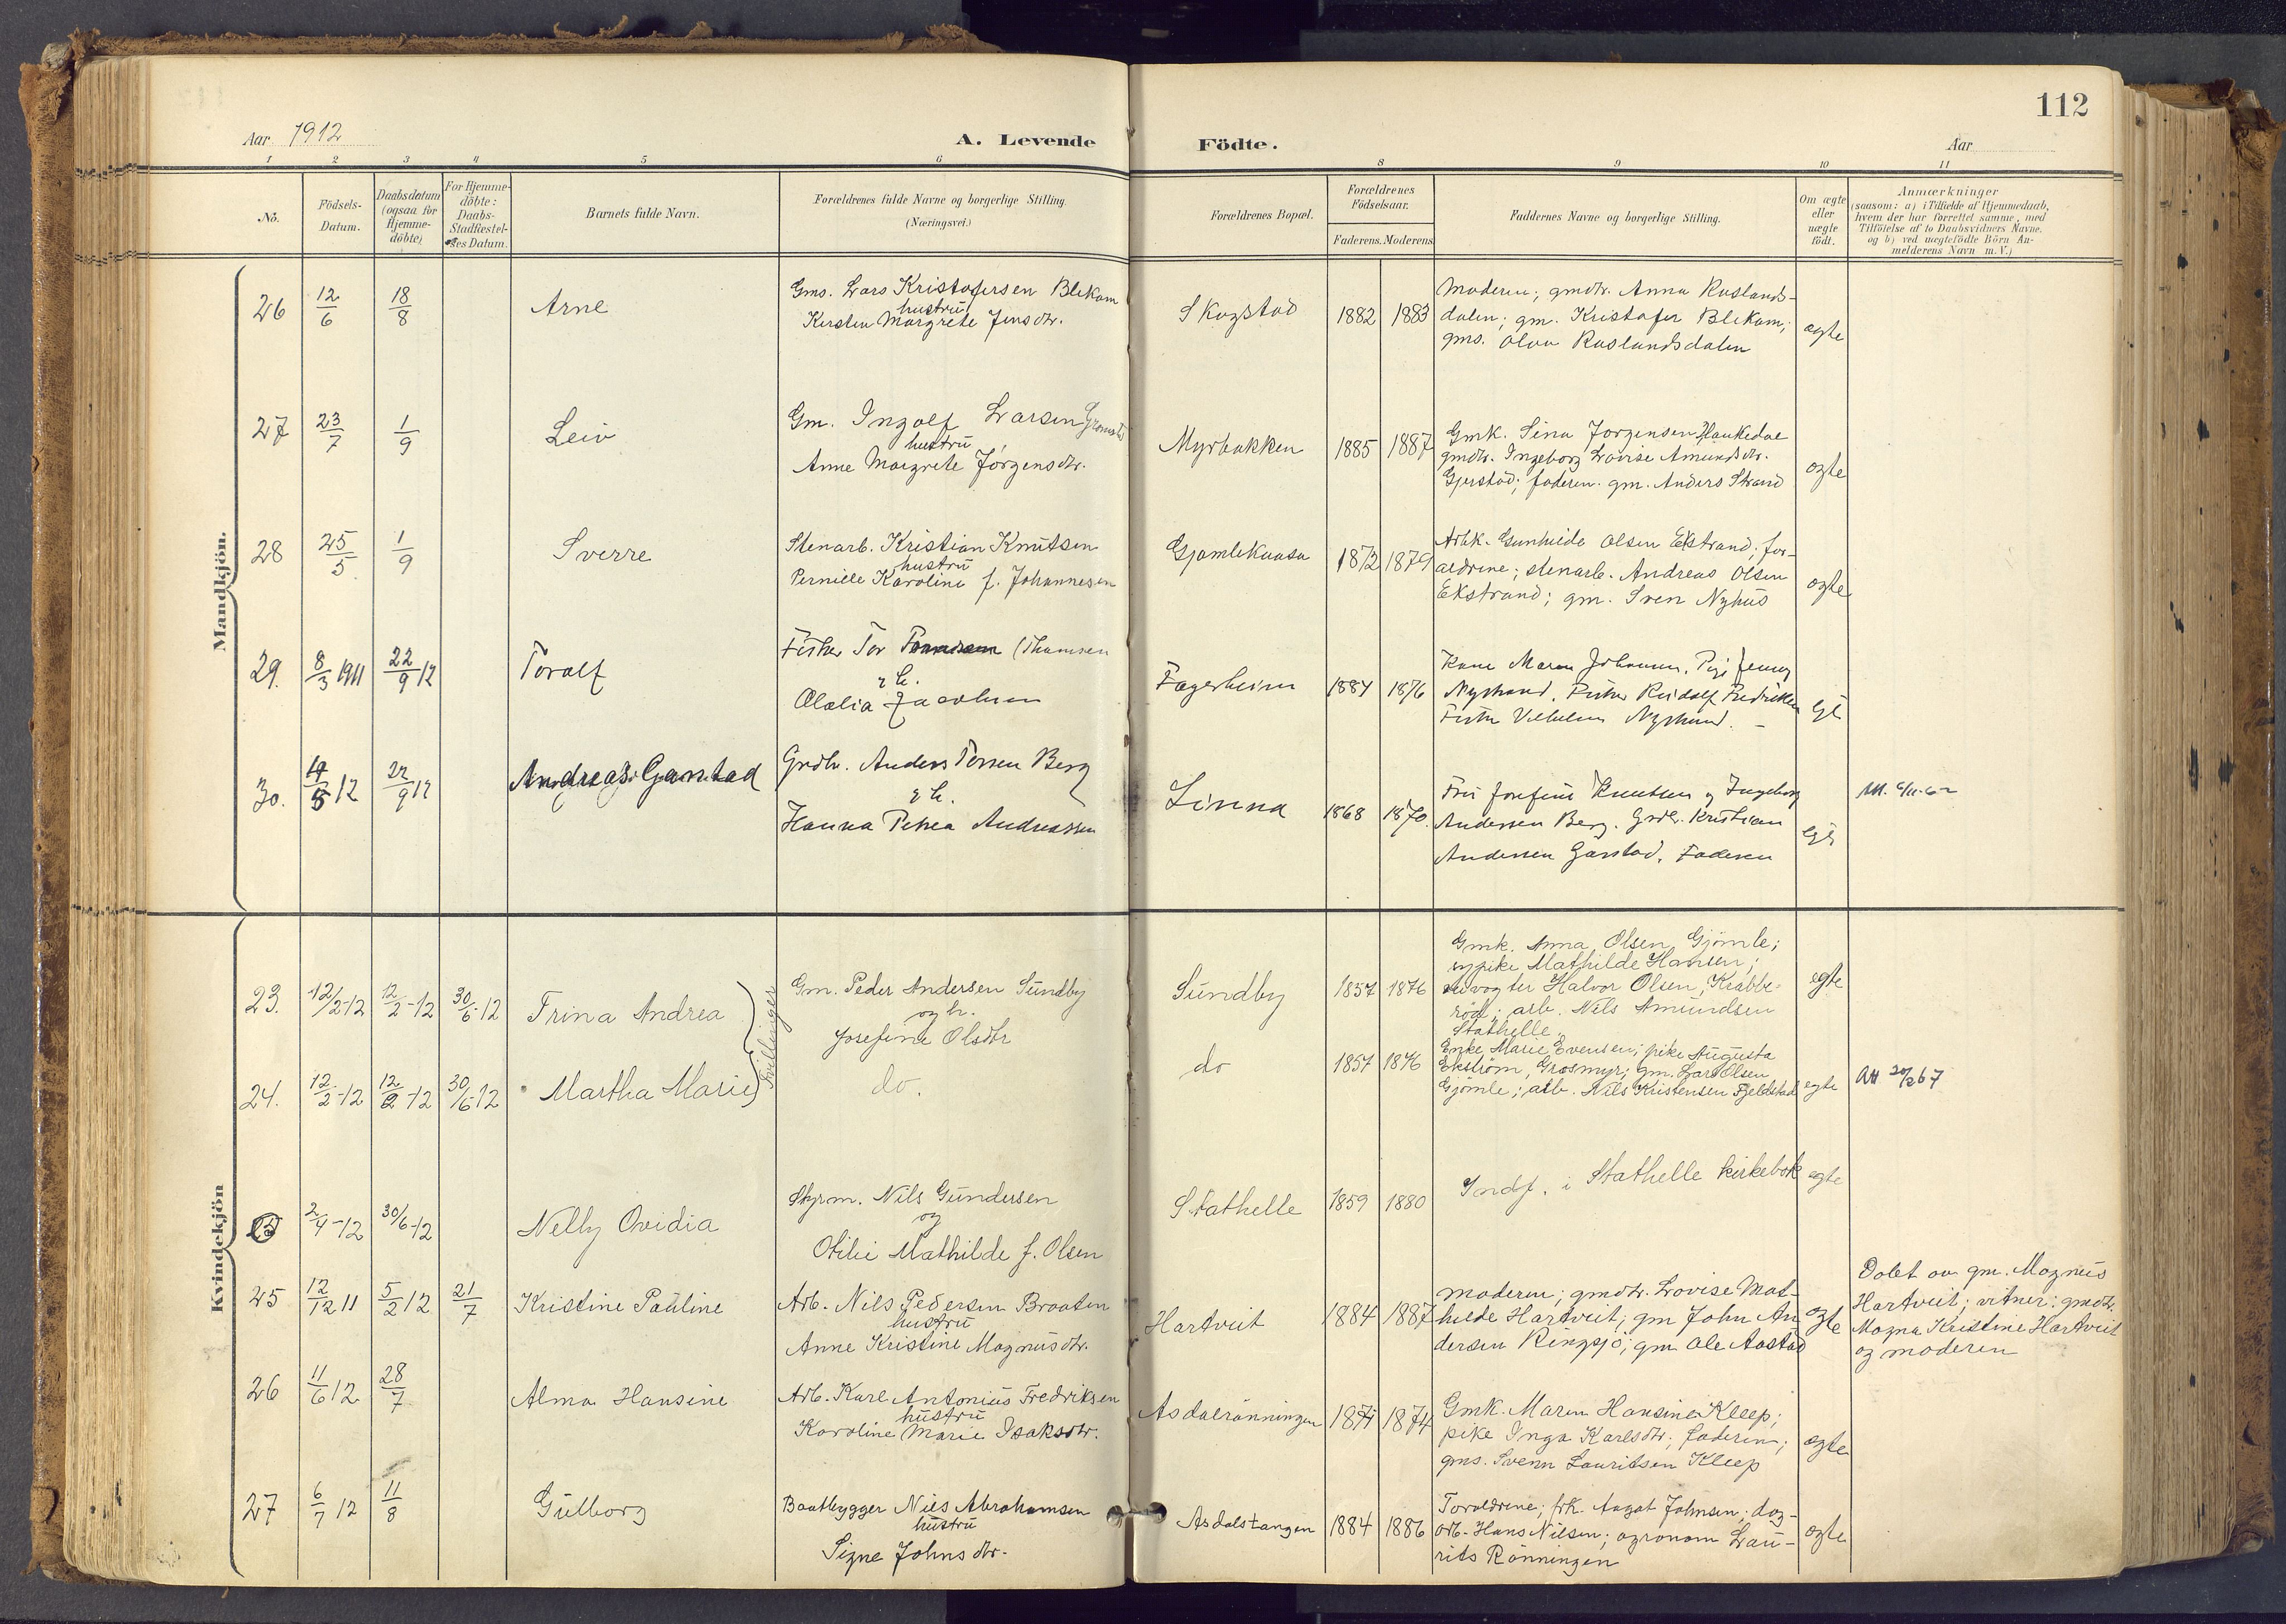 112
Aar 1912
A. Levende Födte.
Aar
1 2 3 4 5 6 8 9 10 11
No.
Födsels-Datum.
Daabsdatum (ogsaa for Hjemmedöbte)
For Hjemmedöbte: Daabs-Stadfæstelses Datum.
Barnets fulde Navn.
Forældrenes fulde Navne og borgerlige Stilling.
(Næringsvei.)
Forældrenes Bopæl.
Forældrenes Födselsaar.
Faderens. Moderens
Faddernes Navne og borgerlige Stilling.
Om ægte eller uægte födt.
Anmærkninger
(saasom: a) i Tilfælde af Hjemmedaab,
hvem der har forrettet samme, med
Tilföielse af to Daabsvidners Navne,
og b) ved uægtefödte Börn An-
melderens Navn m. V.)
Mandkjön.
26 12/6 18/8 Arne
Gms. Lars Kristofersen Blekam
hustru
Kirsten Margrete Jensdtr.
Skogstad 1882 1883
Moderen; gmdtr. Anna Raslands-
dalen; gm. Kristofer Blekam;
gms. Olav Raslandsdalen
ægte
27 23/7 1/9 Leiv
Gm. Ingolf Larsen
hustru
Anne Margrete Jørgensdtr.
Myrbakken 1885 1887
Gmk. Sina Jorgensen Haukedal
gmdtr. Ingeborg Lovise Amundsdtr.
Gjerstad; faderen. gm. Anders Strand
ægte
28 25/5 1/9 Sverre
Stenarb. Kristian Knutsen
hustru
Pernille Karoline f. Johannesen
Gjømlekaasa 1872 1879
Arbk. Gunhilde Olsen Ekstrand; for-
ældrene; stenarb. Andreas Olsen
Ekstrand; gm. Sven Nyhus
ægte
29. 8/3 1911 22/9 12 Toralf
Fisker Tor (Thomsen
Olalia Jacobsen
Fagerheim 1884 1876
Kone Maren Johannes. Pige Jenny
Nystrand. Fisker Rudolf Fredriksen
Fisker Vilhelm Nystrand.
30. 12 22/9 12 Andreas Garstad
Grdbr. Anders Tersen Berg
Hanna Petrea Andreassen
Linna 1868 1870.
Fru Josefine Knutsen og Ingeborg
Andersen Berg. Grdbr. Kristian
Andersen Garstad. Faderen
Kvindekjön
23. 12/2-12 12/2-12 30/6-12 Trina Andrea
Tvillinger
Gm. Peder Andersen Sundby
og h.
Josefine Olsdtr
Sundby 1857 1876
Gmk. Anna Olsen Gjömle;
sypike Mathilde Hansen;
Halvor Olsen, Krabbe-
röd; arb. Nils Amundsen
Stathelle.
egte
24. 12/2-12 12/2-12 30/6-12 Martha Marie
do.
do 1857 1876
Enke Marie Evensen; pike Augusta
Ekström, Grasmyr; gm. Lars Olsen
Gjömle; arb. Nils Kristensen Fjeldstad
egte
2/4-12 30/6-12 Nelly Ovidia
Styrm. Nils Gundersen
og
Otilie Mathilde f. Olsen
Stathelle 1859 1880
Indf. i Stathelle kirkebok
egte
25 12/12 11 5/2 12 21/7 Kristine Pauline
Arb. Nils Pedersen Braaten
hustru
Anne Kristine Magnusdtr.
Hartveit 1884 1887
moderen; gmdtr. Lovise Mat-
hilde Hartveit; gm John An-
dersen Ringsjö; gm Ole Aastad
ægte
Døbt av gm. Magnus
Hartveit; vitner: gmdtr.
Magna Kristine Hartveit
og moderen
26 11/6 12 28/7 Alma Hansine
Arb. Karl Antonius Fredriksen
hustru
Karoline Marie Isaksdtr.
Asdalrønningen 1871 1874
Gmk. Maren Hansine Kleep;
pike Inga Karlsdtr; faderen;
gms. Svenn Lauritsen Kleep
ægte
27 6/7 12 11/8 Gulborg
Baatbygger Nils Abrahamsen
hustru
Signe Johnsdtr.
Asdalstangen 1884 1886
Foraldrene; frk. Aagot Johnsen; dag-
arb. Hans Nilsen; agronom Lau-
rits Rønningen
ægte